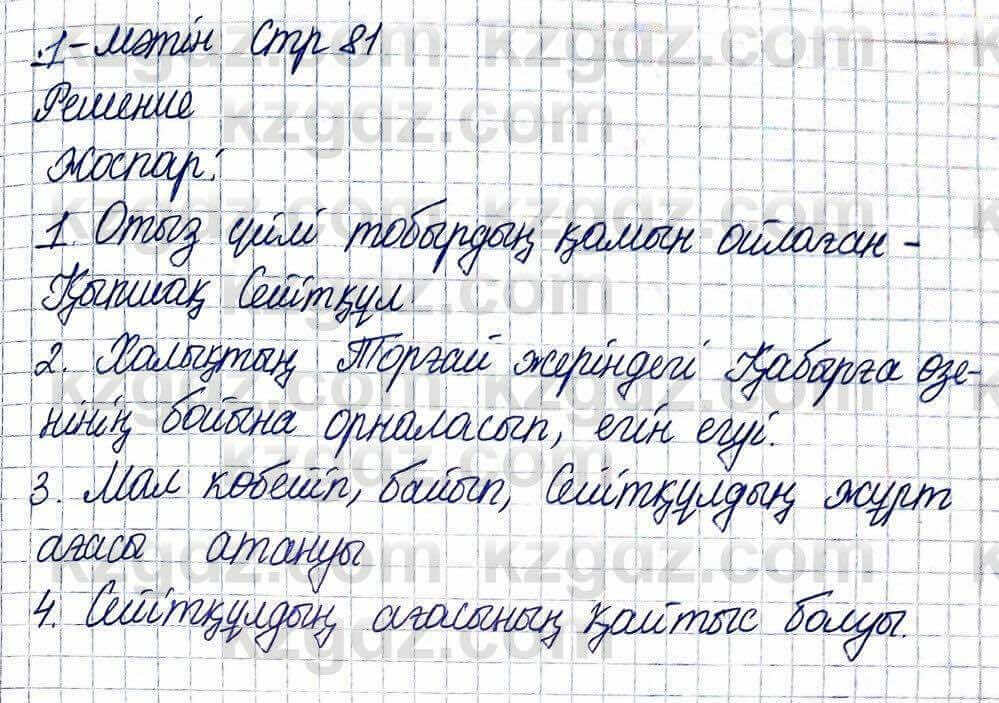 1-мәтін Стр 81
Решение
Жоспар:
1. Отыз үйлі тобырдың қамын ойлаған -
Қыпшақ Сейітқұл
2. Халықтың Торғай жеріндегі Қабырға өзе-
нінің бойына орналасып, егін егуі.
3. Мал көбейіп, байып, Сейітқұлдың жұрт
ағасы атануы
4. Сейітқұлдың ағасының қайтыс болуы.
kzgdz.com